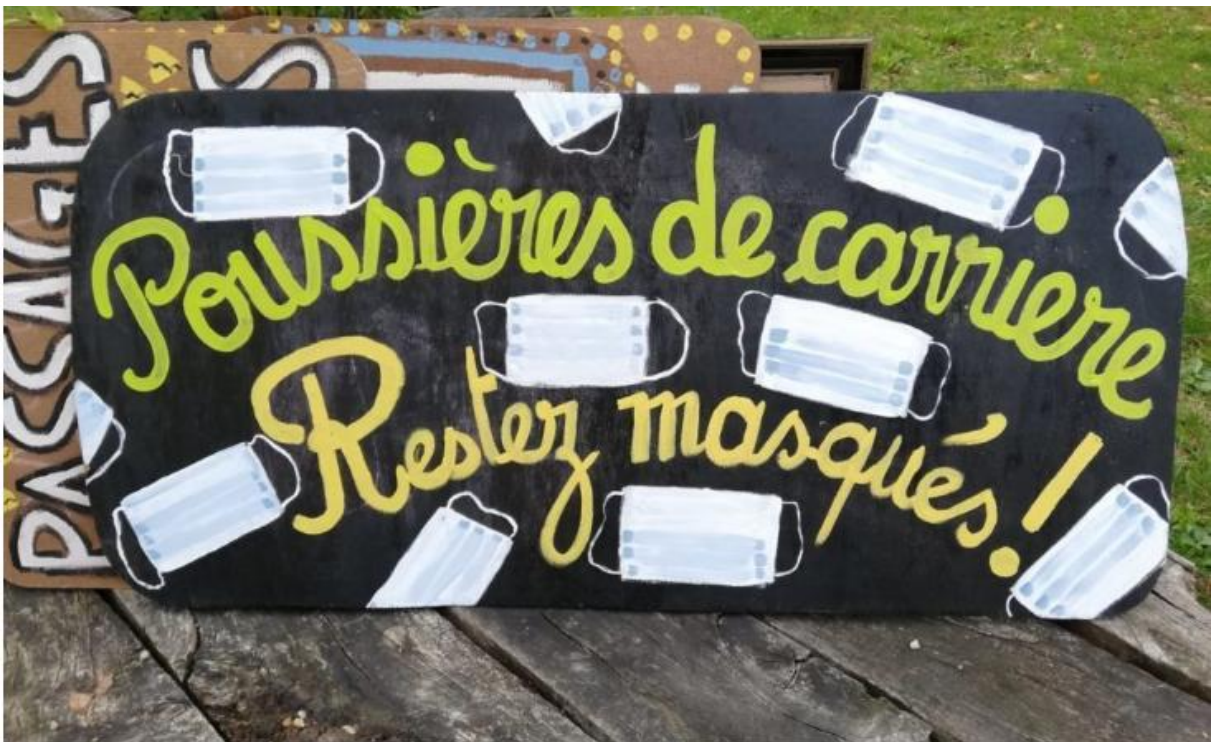 PASSAGES
Poussières de carriere
Restez masqués!